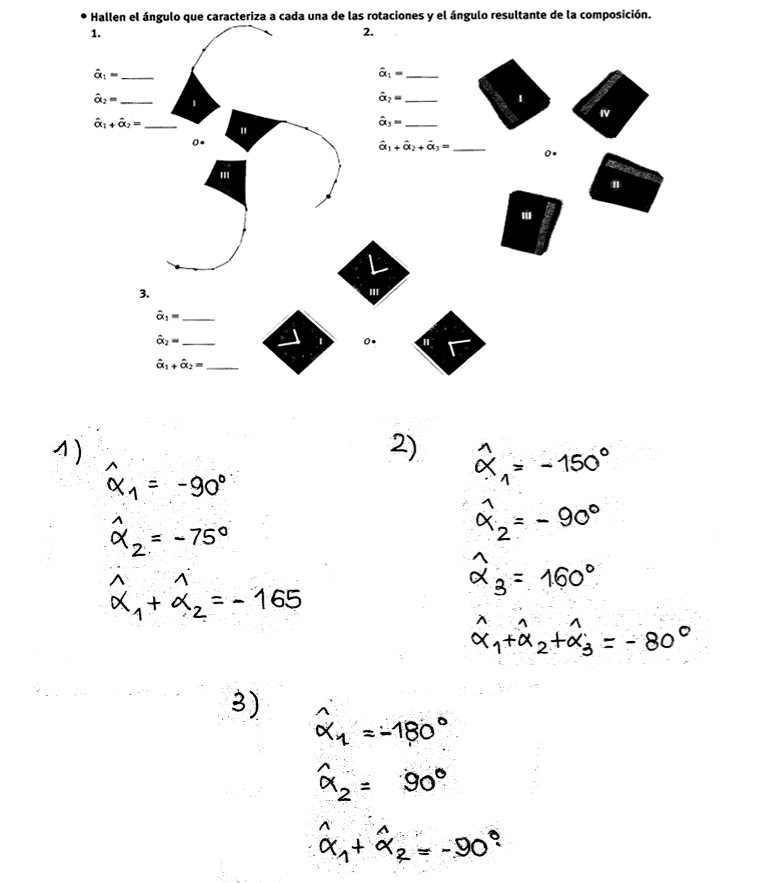 • Hallen el ángulo que caracteriza a cada una de las rotaciones y el ángulo resultante de la composición.
1.
α̂₁ = _____
α̂₂ = _____
α̂₁ + α̂₂ = _____
I
II
III
o•
2.
α̂₁ = _____
α̂₂ = _____
α̂₃ = _____
α̂₁ + α̂₂ + α̂₃ = _____
I
IV
o•
II
III
3.
α̂₁ = _____
α̂₂ = _____
α̂₁ + α̂₂ = _____
III
I
o•
II
1)
α̂₁ = -90°
α̂₂ = -75°
α̂₁ + α̂₂ = - 165
2)
α̂₁ = -150°
α̂₂ = - 90°
α̂₃ = 160°
α̂₁+α̂₂+α̂₃ = - 80°
3)
α̂₁ = -180°
α̂₂ = 90°
α̂₁ + α̂₂ = -90°